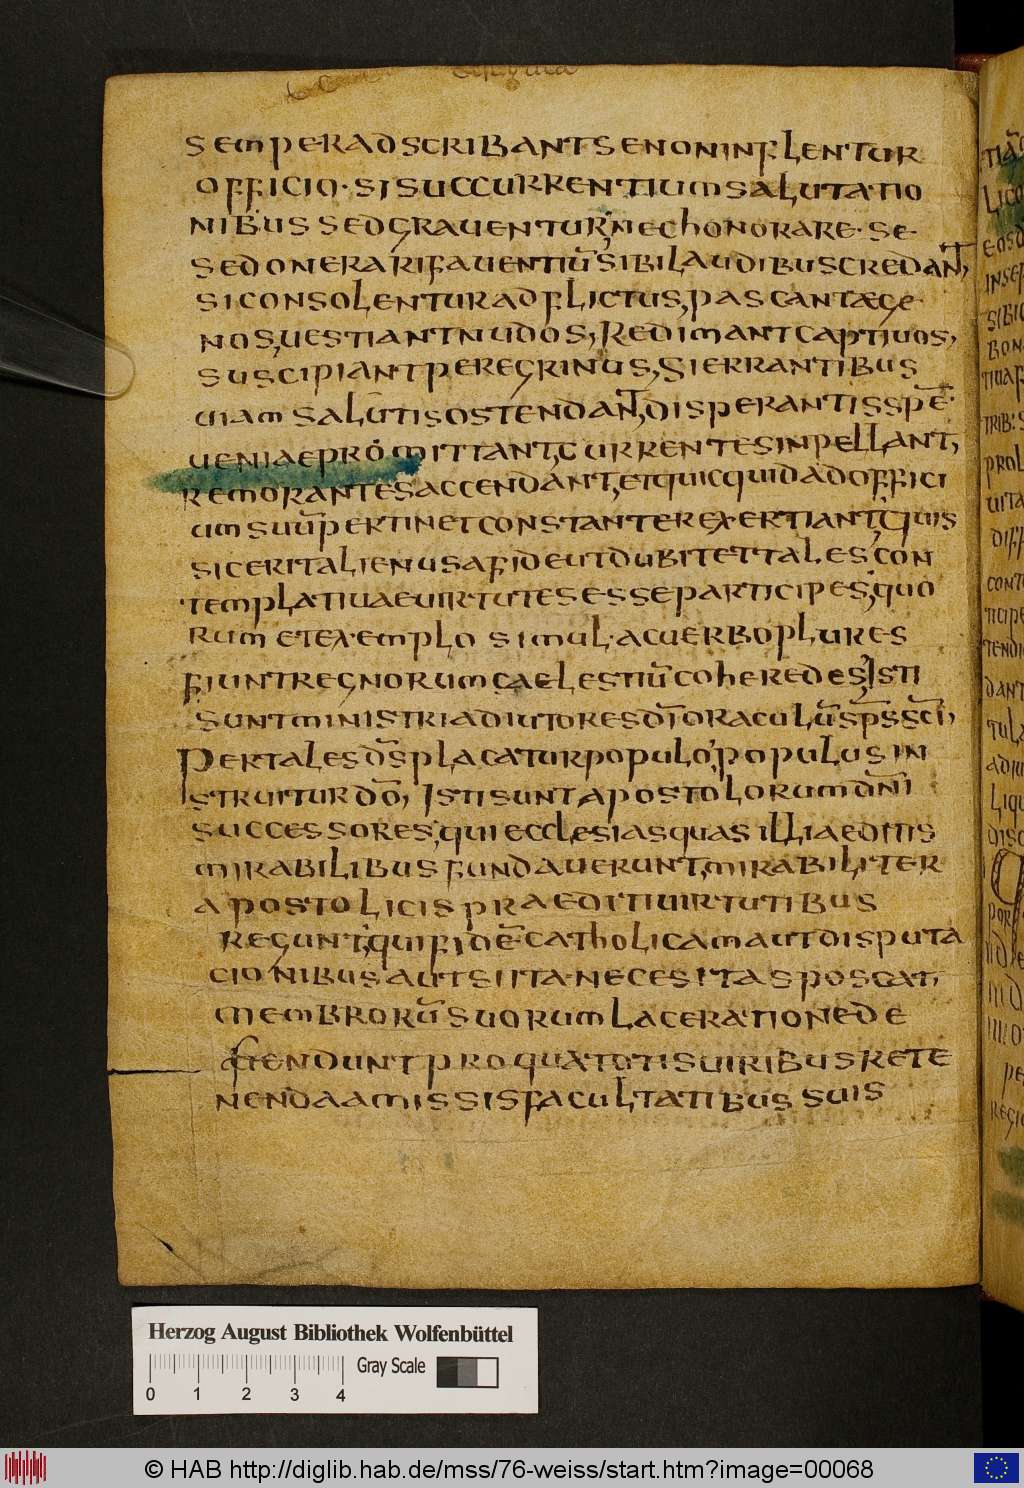 semper adscribant se non inflentur
officio · si succurrentium salutatio
nibus sed graventur, nec honorare · se ·
sed onerari faventiū sibi laudibus credant,
si consolentur adflictus, pascant aege
nos, vestiant nudos, Redimant captivos,
suscipiant peregrinus, si errantibus
viam salutis ostendant, disperantis spē ·
veniae promittant, currentes inpellant,
remorantes accendant, et quicquid ad offici
um suū pertinet constanter exertiant, Quis
sic erit alienus a fide ut dubitet tales con
templativae virtutes esse participes, quo
rum et exemplo simul · ac verbo plures
fiunt regnorum caelestiū coheredes, Isti
sunt ministri adiutores dī oraculū sp̄s sc̄i,
Per tales d̄s placatur populo, populus in
struitur dō, Isti sunt apostolorum dn̄i
successores, qui ecclesias quas illi aeditis
mirabilibus fundaverunt, mirabiliter
apostolicis praediti virtutibus
regunt, qui fidē catholicam aut disputa
cionibus aut si ita necesitas poscat,
membrorū suorum laceratione de
fendunt pro qua totis viribus rete
nenda amissis facultatibus suis
Herzog August Bibliothek Wolfenbüttel
Gray Scale
0 1 2 3 4
© HAB http://diglib.hab.de/mss/76-weiss/start.htm?image=00068